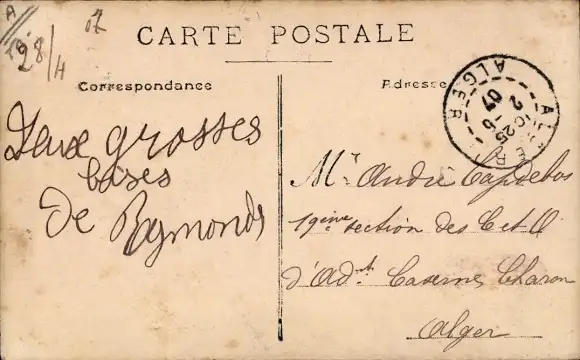 A
19.
28/4
07
CARTE POSTALE
Correspondance
Adresse
ALGER
2-6
07
ALGER
Deux grosses
bises
De Raymonde
Mr André Capdebos
19ème section des C et O
d'Adt. Caserne Charon
Alger